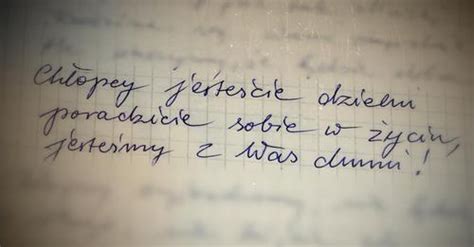 Chłopcy jesteście dzielni
poradzicie sobie w życiu,
jesteśmy z Was dumni!